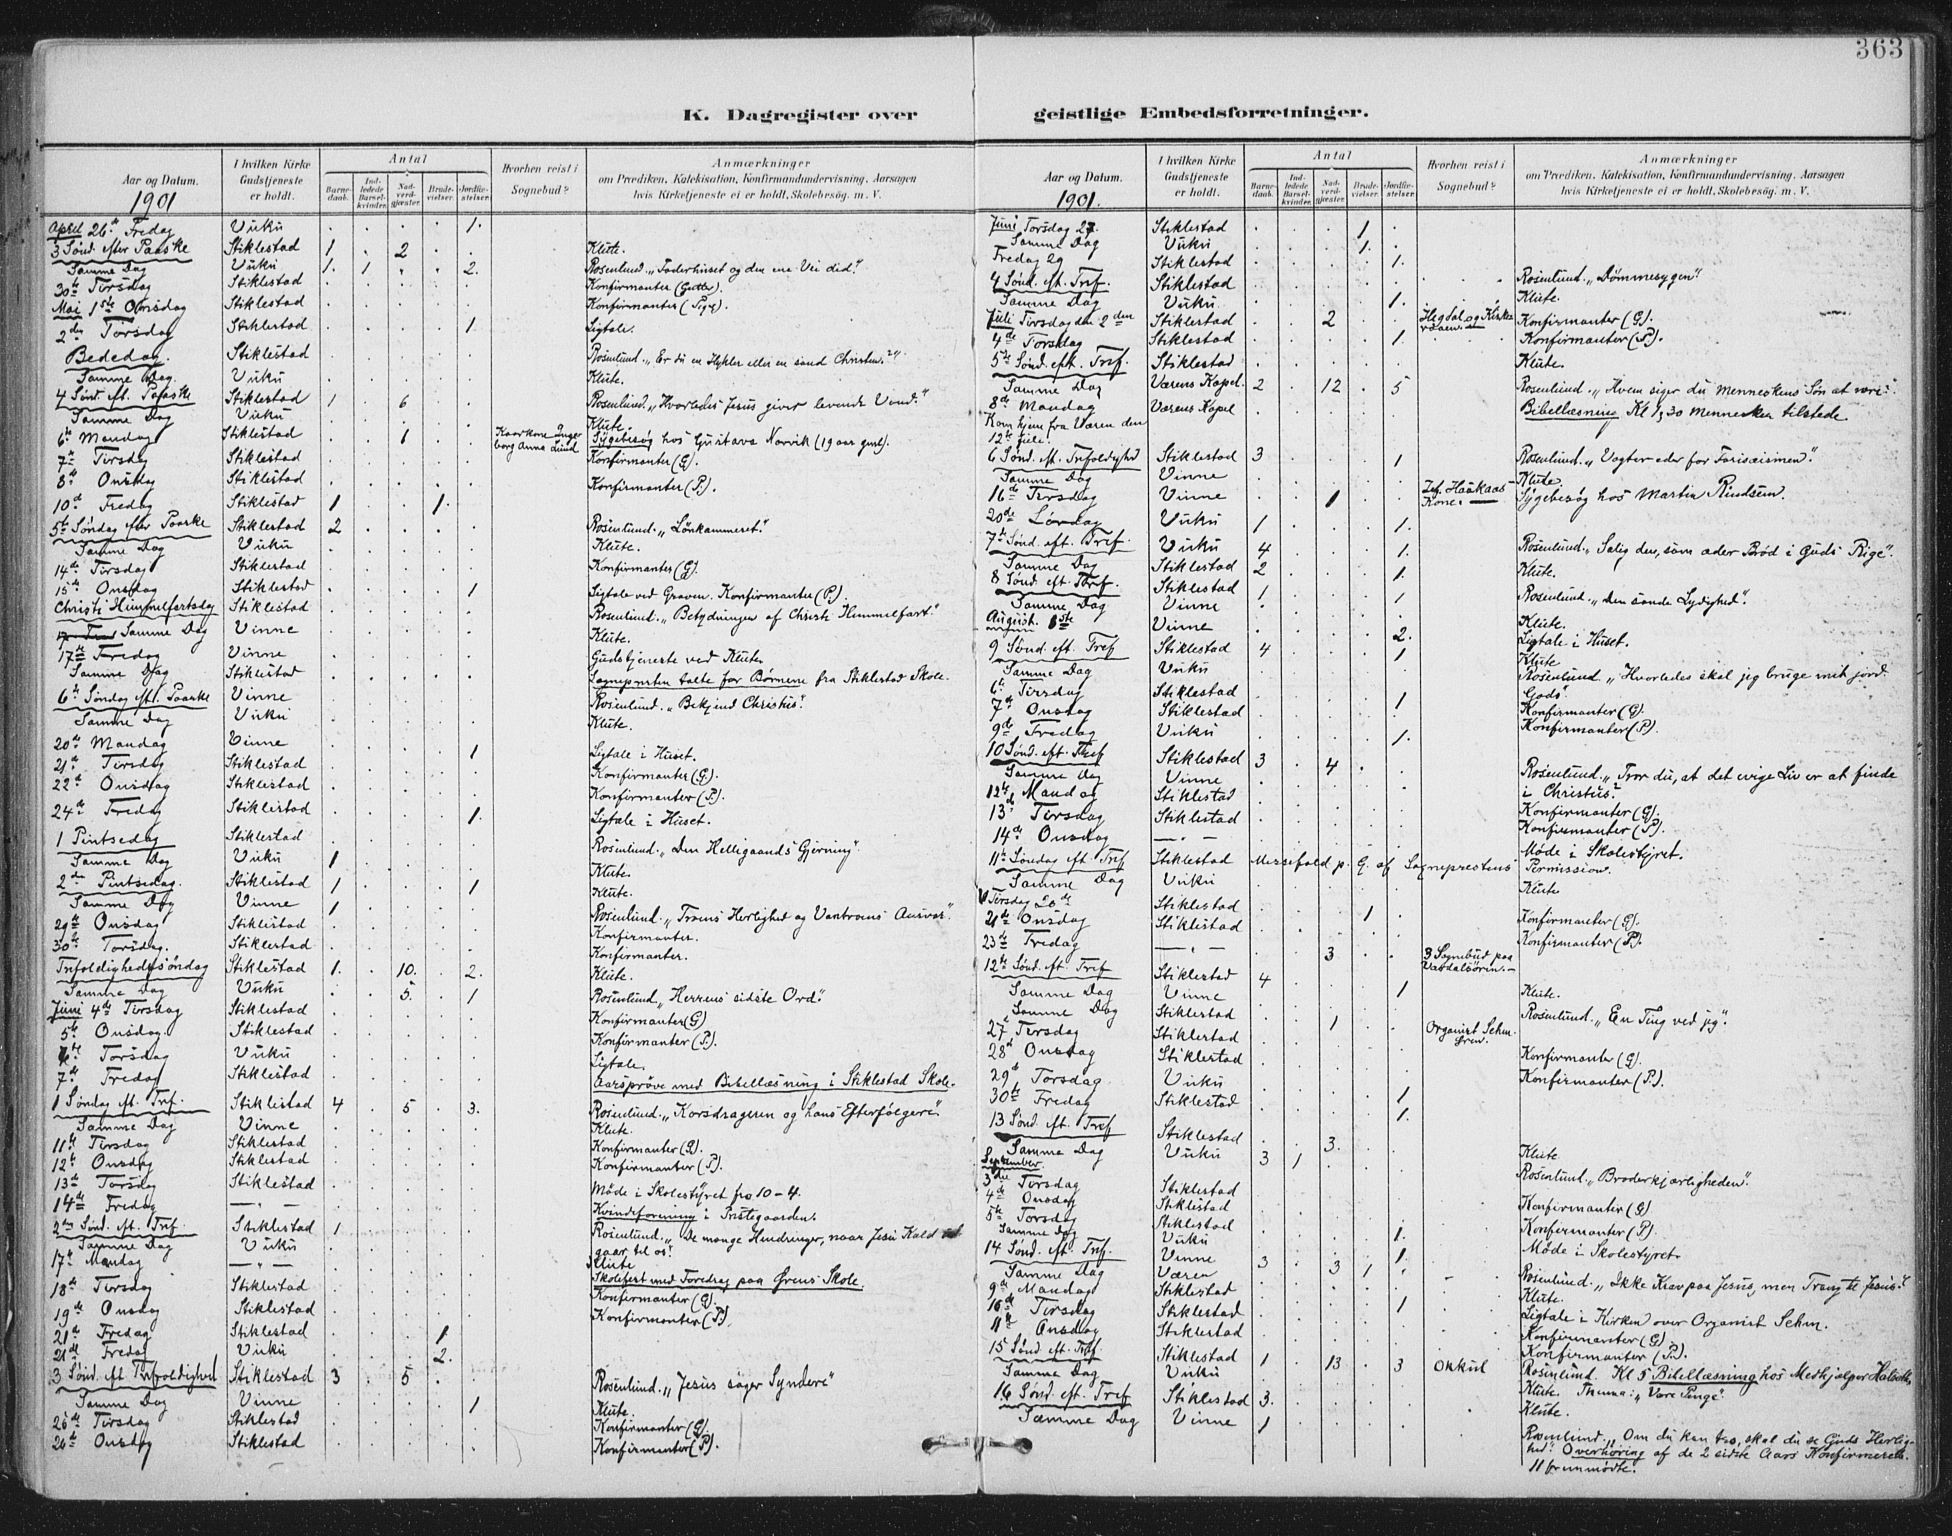 363
K. Dagregister over
geistlige Embedsforretninger.
Aar og Datum.
1901
I hvilken Kirke Gudstjeneste er holdt.
Antal
Barnedaab.
Indledede Barselkvinder.
Nadverdgjæster.
Brudevielser.
Jordfæstelser.
Hvorhen reist i Sognebud?
Anmærkninger
om Prædiken, Katekisation, Konfirmandundervisning, Aarsagen
hvis Kirketjeneste ei er holdt, Skolebesøg. m. V.
April 26de Fredag Vuku 1.
3 Sønd. efter Paaske Stiklestad 1 2 Klute.
Samme Dag Vuku 1. 1 2. Rosenlund. „Faderhuset og den ene Vei did."
30te Tirsdag Stiklestad Konfirmanter (Gutter).
Mai 1ste Onsdag Stiklestad Konfirmanter (Piger).
2den Torsdag Stiklestad 1 Ligtale.
Bededag. Stiklestad Rosenlund. „Er du en Hykler eller en sand Christen?"
Samme Dag. Vuku Klute.
4 Sønd. eft. Paaske Stiklestad 1 6 Rosenlund. „Hvorledes Jesus giver levende Vand."
Samme Dag Vuku Klute.
6te Mandag Stiklestad 1 Kaarkone Ingeborg Anna Lund Sygebesøg hos Gustava Norvik (19 aar gml).
7de Tirsdag Stiklestad Konfirmanter (G).
8de Onsdag Stiklestad Konfirmanter (P.).
10d Fredag Stiklestad 1 1.
5te Søndag efter Paaske Stiklestad 2 Rosenlund. „Lønkammeret."
Samme Dag Vuku Klute.
14de Tirsdag Stiklestad Konfirmanter (G).
15de Onsdag Stiklestad 1 Ligtale ved Graven. Konfirmanter (P.).
Christi Himmelfartsdag Stiklestad Rosenlund. „Betydningen af Christi Himmelfart."
Samme Dag Vinne Klute.
17de Fredag Vinne Gudstjeneste ved Klute.
Samme Dag Stiklestad Sognepresten talte for Børnene fra Stiklestad Skole.
6te Søndag eft. Paaske Vinne Rosenlund. „Bekjend Christus."
Samme Dag Vuku Klute.
20de Mandag Vinne 1 Ligtale i Huset.
21de Tirsdag Stiklestad Konfirmanter (G).
22de Onsdag Stiklestad Konfirmanter (P.).
24d Fredag Stiklestad 1. Ligtale i Huset.
1 Pintsedag Stiklestad Rosenlund. „Den Helligaands Gjerning".
Samme Dag Vuku 1 Klute.
2den Pintsedag. Stiklestad 1 1 Klute.
Samme Dag Vinne 1 Rosenlund. „Troens Herlighed og Vantroens Ansvar".
29de Onsdag Stiklestad Konfirmanter.
30te Torsdag. Stiklestad Konfirmanter.
Trefoldighedssøndag Stiklestad 1. 10. 2. Klute.
Samme Dag Vuku 5. 1 Rosenlund „Herrens sidste Ord."
Juni 4de Tirsdag Stiklestad Konfirmanter (G)
5te Onsdag. Stiklestad Konfirmanter (P.).
6te Torsdag Vuku Ligtale.
7de Fredag Stiklestad Aarsprøve med Bibellæsning i Stiklestad Skole.
1 Søndag eft. Tref. Stiklestad 4 5 3. Rosenlund. „Korsdrageren og hans Efterfølgere".
Samme Dag Vinne Klute.
11te Tirsdag Stiklestad Konfirmanter (G).
12te Onsdag Stiklestad Konfirmanter (P.).
13de Torsdag Stiklestad Møde i Skolestyret fra 10-4.
14de Fredag — " — Kvindeforening i Prestegaarden.
2den Sønd. eft. Tref. Stiklestad 1 Rosenlund. „De mange Hindringer, naar Jesu Kald
gaar til os."
Samme Dag Vuku Klute
17de Mandag — " — Skolefest med Foredrag paa Ørens Skole.
18de Tirsdag Stiklestad Konfirmanter (G).
19de Onsdag Stiklestad Konfirmanter (P.)
21de Fredag Stiklestad 1
21de Fredag Vuku 2.
3 Sønd. eft Trefoldighed Stiklestad 3 5 Rosenlund. „Jesus søger Syndere"
Samme Dag Vinne 1 Klute.
25de Tirsdag Stiklestad Konfirmanter (G).
26de Onsdag Stiklestad Konfirmanter (P).
Aar og Datum.
1901.
I hvilken Kirke Gudstjeneste er holdt.
Antal
Barnedaab.
Indledede Barselkvinder.
Nadverdgjæster.
Brudevielser.
Jordfæstelser.
Hvorhen reist i Sognebud?
Anmærkninger
om Prædiken, Katekisation, Konfirmandundervisning, Aarsagen
hvis Kirketjeneste ei er holdt, Skolebesøg. m. V.
Juni Torsdag 27. Stiklestad 1
Samme Dag Vuku 1.
Fredag 29 Stiklestad 1.
4 Sønd. eft. Tref. Stiklestad Rosenlund. „Dømmesygen"
Samme Dag Vuku 1. Klute.
Juli Tirsdag den 2den Stiklestad 2 Konfirmanter (G).
4de Torsdag Stiklestad 1 Konfirmanter (P.).
5te Sønd. eft. Tref. Stiklestad Klute.
Samme Dag Værens Kapel. 2 12 5 Rosenlund. „Hvem siger du Menneskens Søn at være".
8de Mandag Værens Kapel Bibellæsning Kl 1, 30 Mennesker tilstede.
Kom hjem fra Væren den
12te juli.
6 Sønd. eft. Trefoldighed Stiklestad 3 1 Rosenlund. „Vogter eder for Farisæismen."
Samme Dag Vinne Klute.
16de Tirsdag Vinne 1 Haakaas Kone. Sygebesøg hos Martin Rindsem.
20de Lørdag Vuku 1 1.
7de Sønd. eft. Tref. Vuku 4 1. Rosenlund. „Salig den, som æder Brød i Guds Rige".
Samme Dag Stiklestad 2 Klute.
8 Sønd eft Tref. Stiklestad 1 1. Rosenlund. „Den sande Lydighed".
Samme Dag Vinne 1 Klute.
August. 1ste Vinne 2. Ligtale i Huset.
9 Sønd. eft. Tref Stiklestad 4 1 Klute
Samme Dag Vuku Rosenlund „Hvorledes skal jeg bruge mit jord.
Gods".
6te Tirsdag Stiklestad Konfirmanter (G).
7de Onsdag Stiklestad 1 Konfirmanter (P).
9de Fredag Vuku 1.
10 Sønd. eft. Tref Stiklestad 3 4 Rosenlund. „Tror du, at det evige Liv er at finde
i Christus?"
Samme Dag Vinne
12te Mandag Stiklestad Konfirmanter (G).
13de Tirsdag Stiklestad Konfirmanter (P.).
14de Onsdag — " — Møde i Skolestyret.
11te Søndag eft Tref Stiklestad Messefald p. G. af Sogneprestens Permission.
Samme Dag Vuku Klute
Tirsdag 20de Stiklestad 1 Konfirmanter (G).
21de Onsdag Stiklestad Konfirmanter (P.).
23de Fredag — " — 3 3 Sognebud paa Værdalsøren.
12te Sønd. eft. Tref Stiklestad 4
Samme Dag Vinne 1 Klute.
Samme Dag Stiklestad Rosenlund. „En Ting ved jeg".
27de Tirsdag Stiklestad 1 Organist Sehm. Konfirmanter (G).
28d Onsdag Stiklestad Konfirmanter (P.).
29d Torsdag Vuku 1
30te Fredag Stiklestad 1.
13 Sønd. eft. Tref Stiklestad 3. Klute
Samme Dag Vuku 3 1 Rosenlund. „Broderkjærligheden".
September.
3die Tirsdag Stiklestad Konfirmanter (G)
4de Onsdag Stiklestad Konfirmanter (P).
5te Torsdag Stiklestad Møde i Skolestyret.
Samme Dag Vuku 1.
14 Sønd. eft. Tref. Vinne 3 3 1. Rosenlund. „Ikke Krav paa Jesus, men Trang til Jesus".
Samme Dag Væren 1 Klute.
9de Mandag Stiklestad Ligtale i Kirken over Organist Sehm.
10de Tirsdag Stiklestad 1 Konfirmanter (G)
11te Onsdag Stiklestad Konfirmanter (P.)
15 Sønd eft. Tref. Stiklestad 1 13 3 Okkul Rosenlund. Kl 5 Bibellæsning hos Medhjælper
Samme Dag Vuku Klute. Thema: „Vore Penge".
16 Sønd. eft. Tref Stiklestad 3. Klute.
Samme Dag Vinne 1 Rosenlund. „Om du kan tro, skal du se Guds Herlighed."
Overhøring af de 2 sidste Aars Konfirmerede.
11 fremmødte.